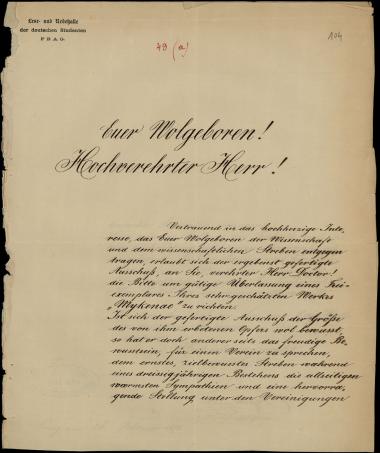 Lese- und Redehalle
der deutschen Studenten
PRAG.
49 (a)
104
Euer Wolgeboren!
Hochverehrter Herr!
Vertrauend in das hochherzige Inte,
resse, das Euer Wolgeboren der Wissenschaft
und dem wissenschaftlichen Streben entgegen
tragen, erlaubt sich der ergebenst gefertigte
Ausschuß, an Sie, verehrter Herr Doctor!
die Bitte um gütige Überlassung eines Frei-
exemplares Ihres sehr geschätzten Werkes
„Mykenae" zu richten.
Ist sich der gefertigte Ausschuß der Größe
des von ihm erbetenen Opfers wol bewusst,
so hat er doch anderer seits das freudige Be-
wusstsein, für einen Verein zu sprechen,
dem ernstes, zielbewusstes Streben während
eines dreissigjährigen Bestehens die allseitigen
wärmsten Sympathien und eine hervorra,
gende Stellung unter den Vereinigungen